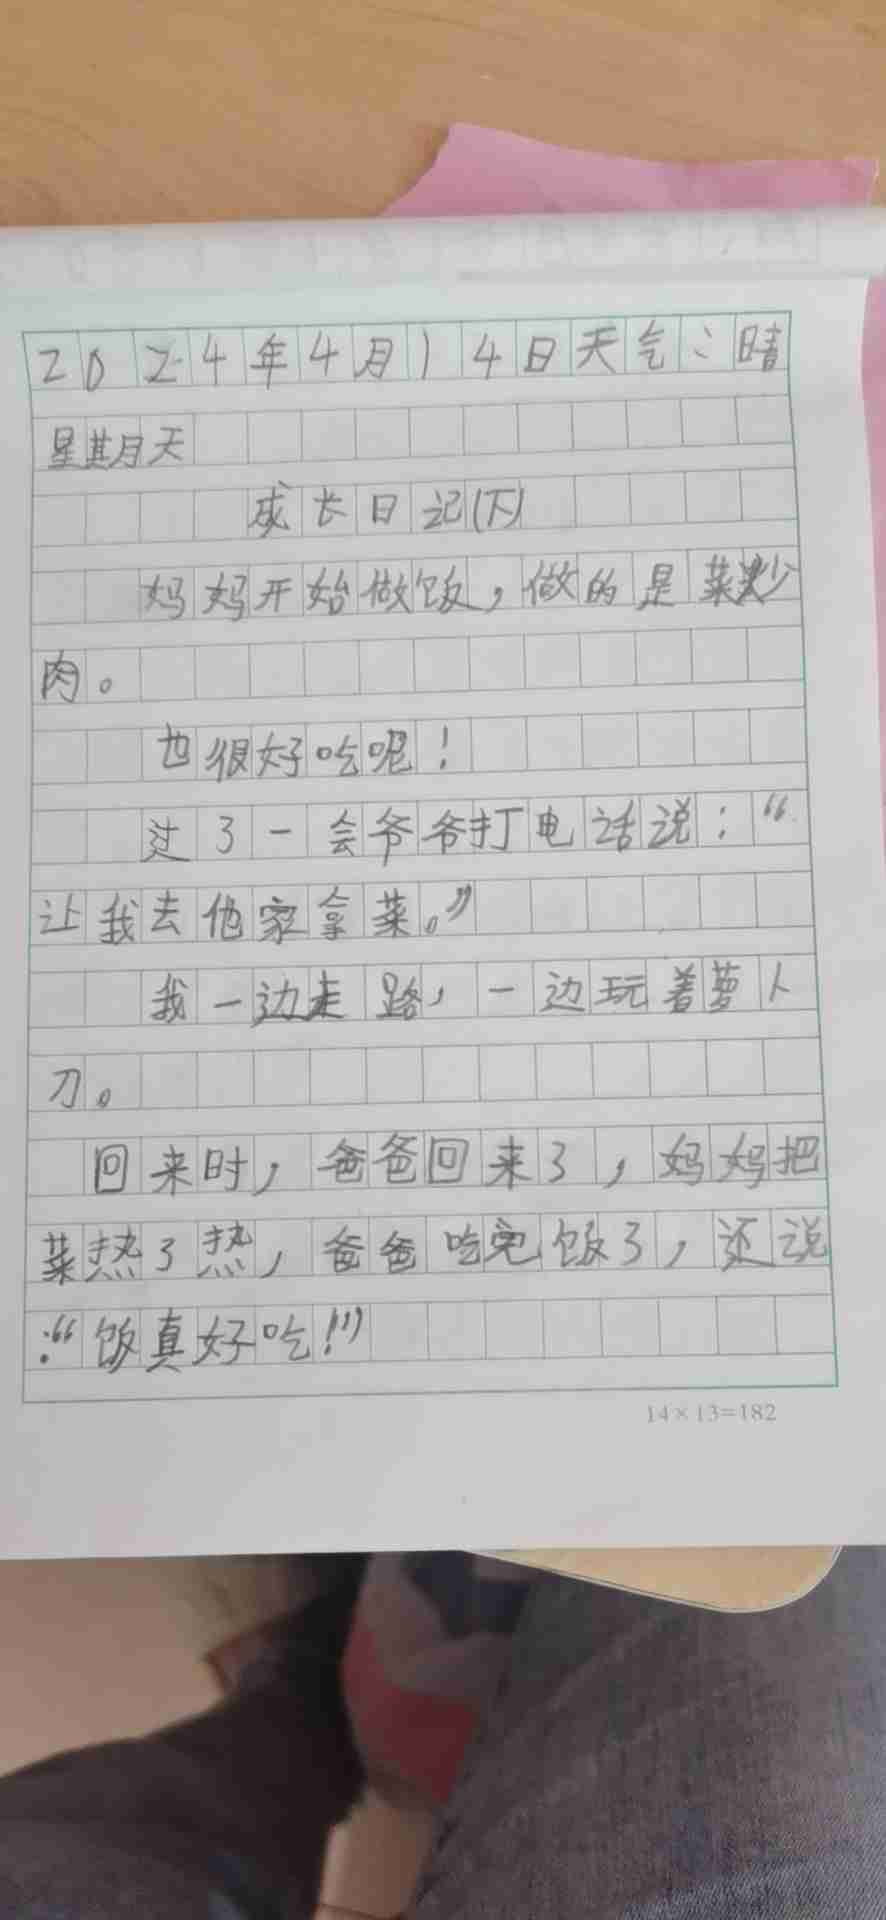 2024年4月14日天气：晴
星期天
成长日记(下)
妈妈开始做饭，做的是菜炒
肉。
也很好吃呢！
过了一会爷爷打电话说：“
让我去他家拿菜。”
我一边走路，一边玩着萝卜
刀。
回来时，爸爸回来了，妈妈把
菜热了热，爸爸吃完饭了，还说
：“饭真好吃！”
14×13=182